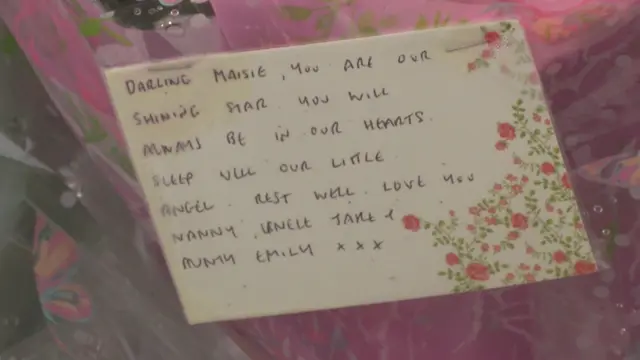 DARLING MAISIE, YOU ARE OUR
SHINING STAR YOU WILL
ALWAYS BE IN OUR HEARTS.
SLEEP WELL OUR LITTLE
ANGEL. REST WELL. LOVE YOU
NANNY, UNCLE JAKE &
AUNTY EMILY x x x